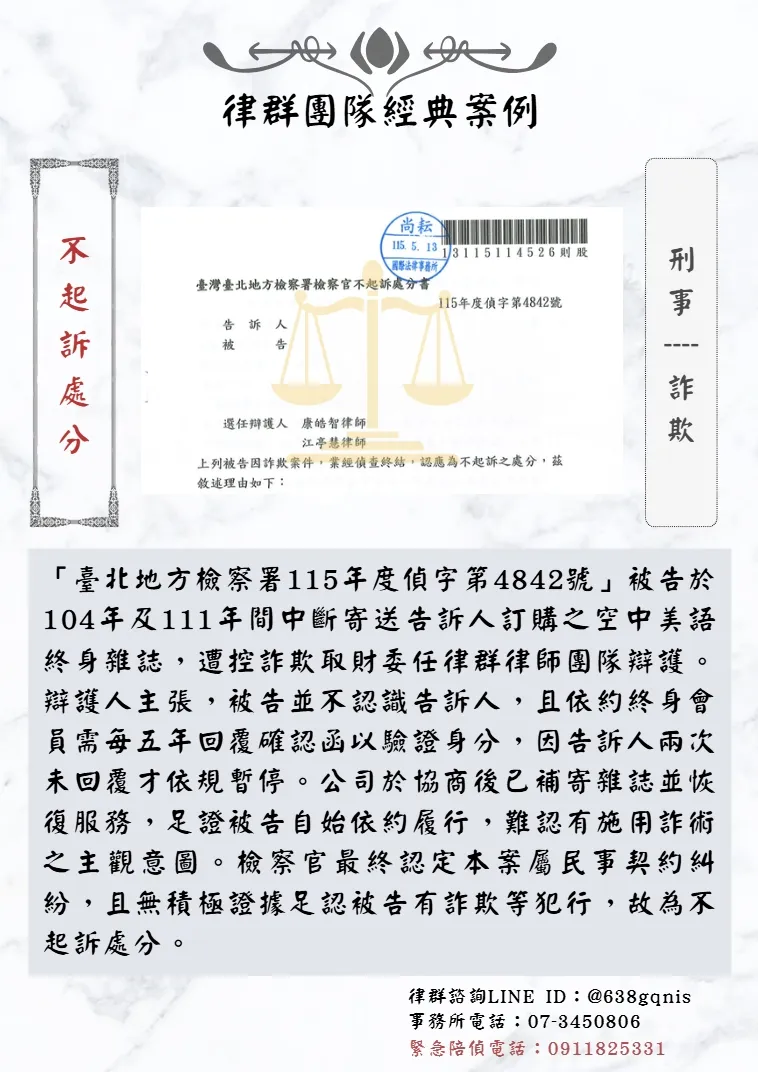 律群團隊經典案例
不起訴處分
刑事----詐欺
尚耘
115. 5. 13
國際法律事務所
13115114526則股
臺灣臺北地方檢察署檢察官不起訴處分書
115年度偵字第4842號
告訴人
被告
選任辯護人 康皓智律師
江亭慧律師
上列被告因詐欺案件,業經偵查終結,認應為不起訴之處分,茲
敘述理由如下:
「臺北地方檢察署115年度偵字第4842號」被告於
104年及111年間中斷寄送告訴人訂購之空中美語
終身雜誌,遭控詐欺取財委任律群律師團隊辯護。
辯護人主張,被告並不認識告訴人,且依約終身會
員需每五年回覆確認函以驗證身分,因告訴人兩次
未回覆才依規暫停。公司於協商後已補寄雜誌並恢
復服務,足證被告自始依約履行,難認有施用詐術
之主觀意圖。檢察官最終認定本案屬民事契約糾
紛,且無積極證據足認被告有詐欺等犯行,故為不
起訴處分。
律群諮詢LINE ID:@638gqnis
事務所電話:07-3450806
緊急陪偵電話:0911825331